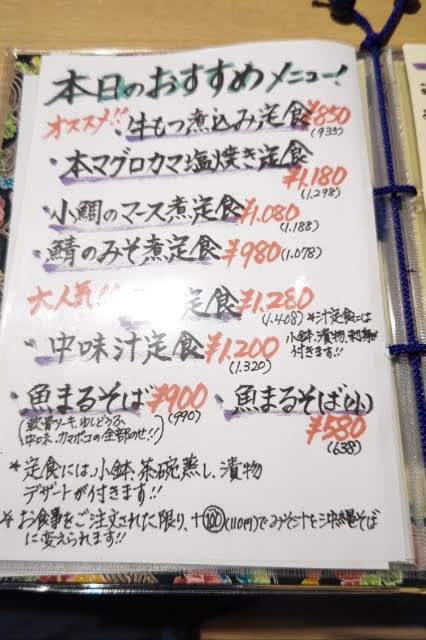 本日のおすすめメニュー!
オススメ!! 牛もつ煮込み定食 ¥850
(935)
・本マグロカマ塩焼き定食
¥1,180
(1,298)
・小鯛のマース煮定食 ¥1,080
(1,188)
・鯖のみそ煮定食 ¥980 (1,078)
大人気!! 定食 ¥1,280
(1,408) *汁定食には
小鉢、漬物、刺身が
付きます!!
・中味汁定食 ¥1,200
(1,320)
・魚まるそば ¥900
(990)
(軟骨ソーキ、ゆしどうふ、
中味、カマボコの全部のせ!!)
・魚まるそば(小)
¥580
(638)
*定食には、小鉢、茶碗蒸し、漬物
デザートが付きます!!
*お食事をご注文された限り、+100(110円)でみそ汁を沖縄そば
に変えられます!!